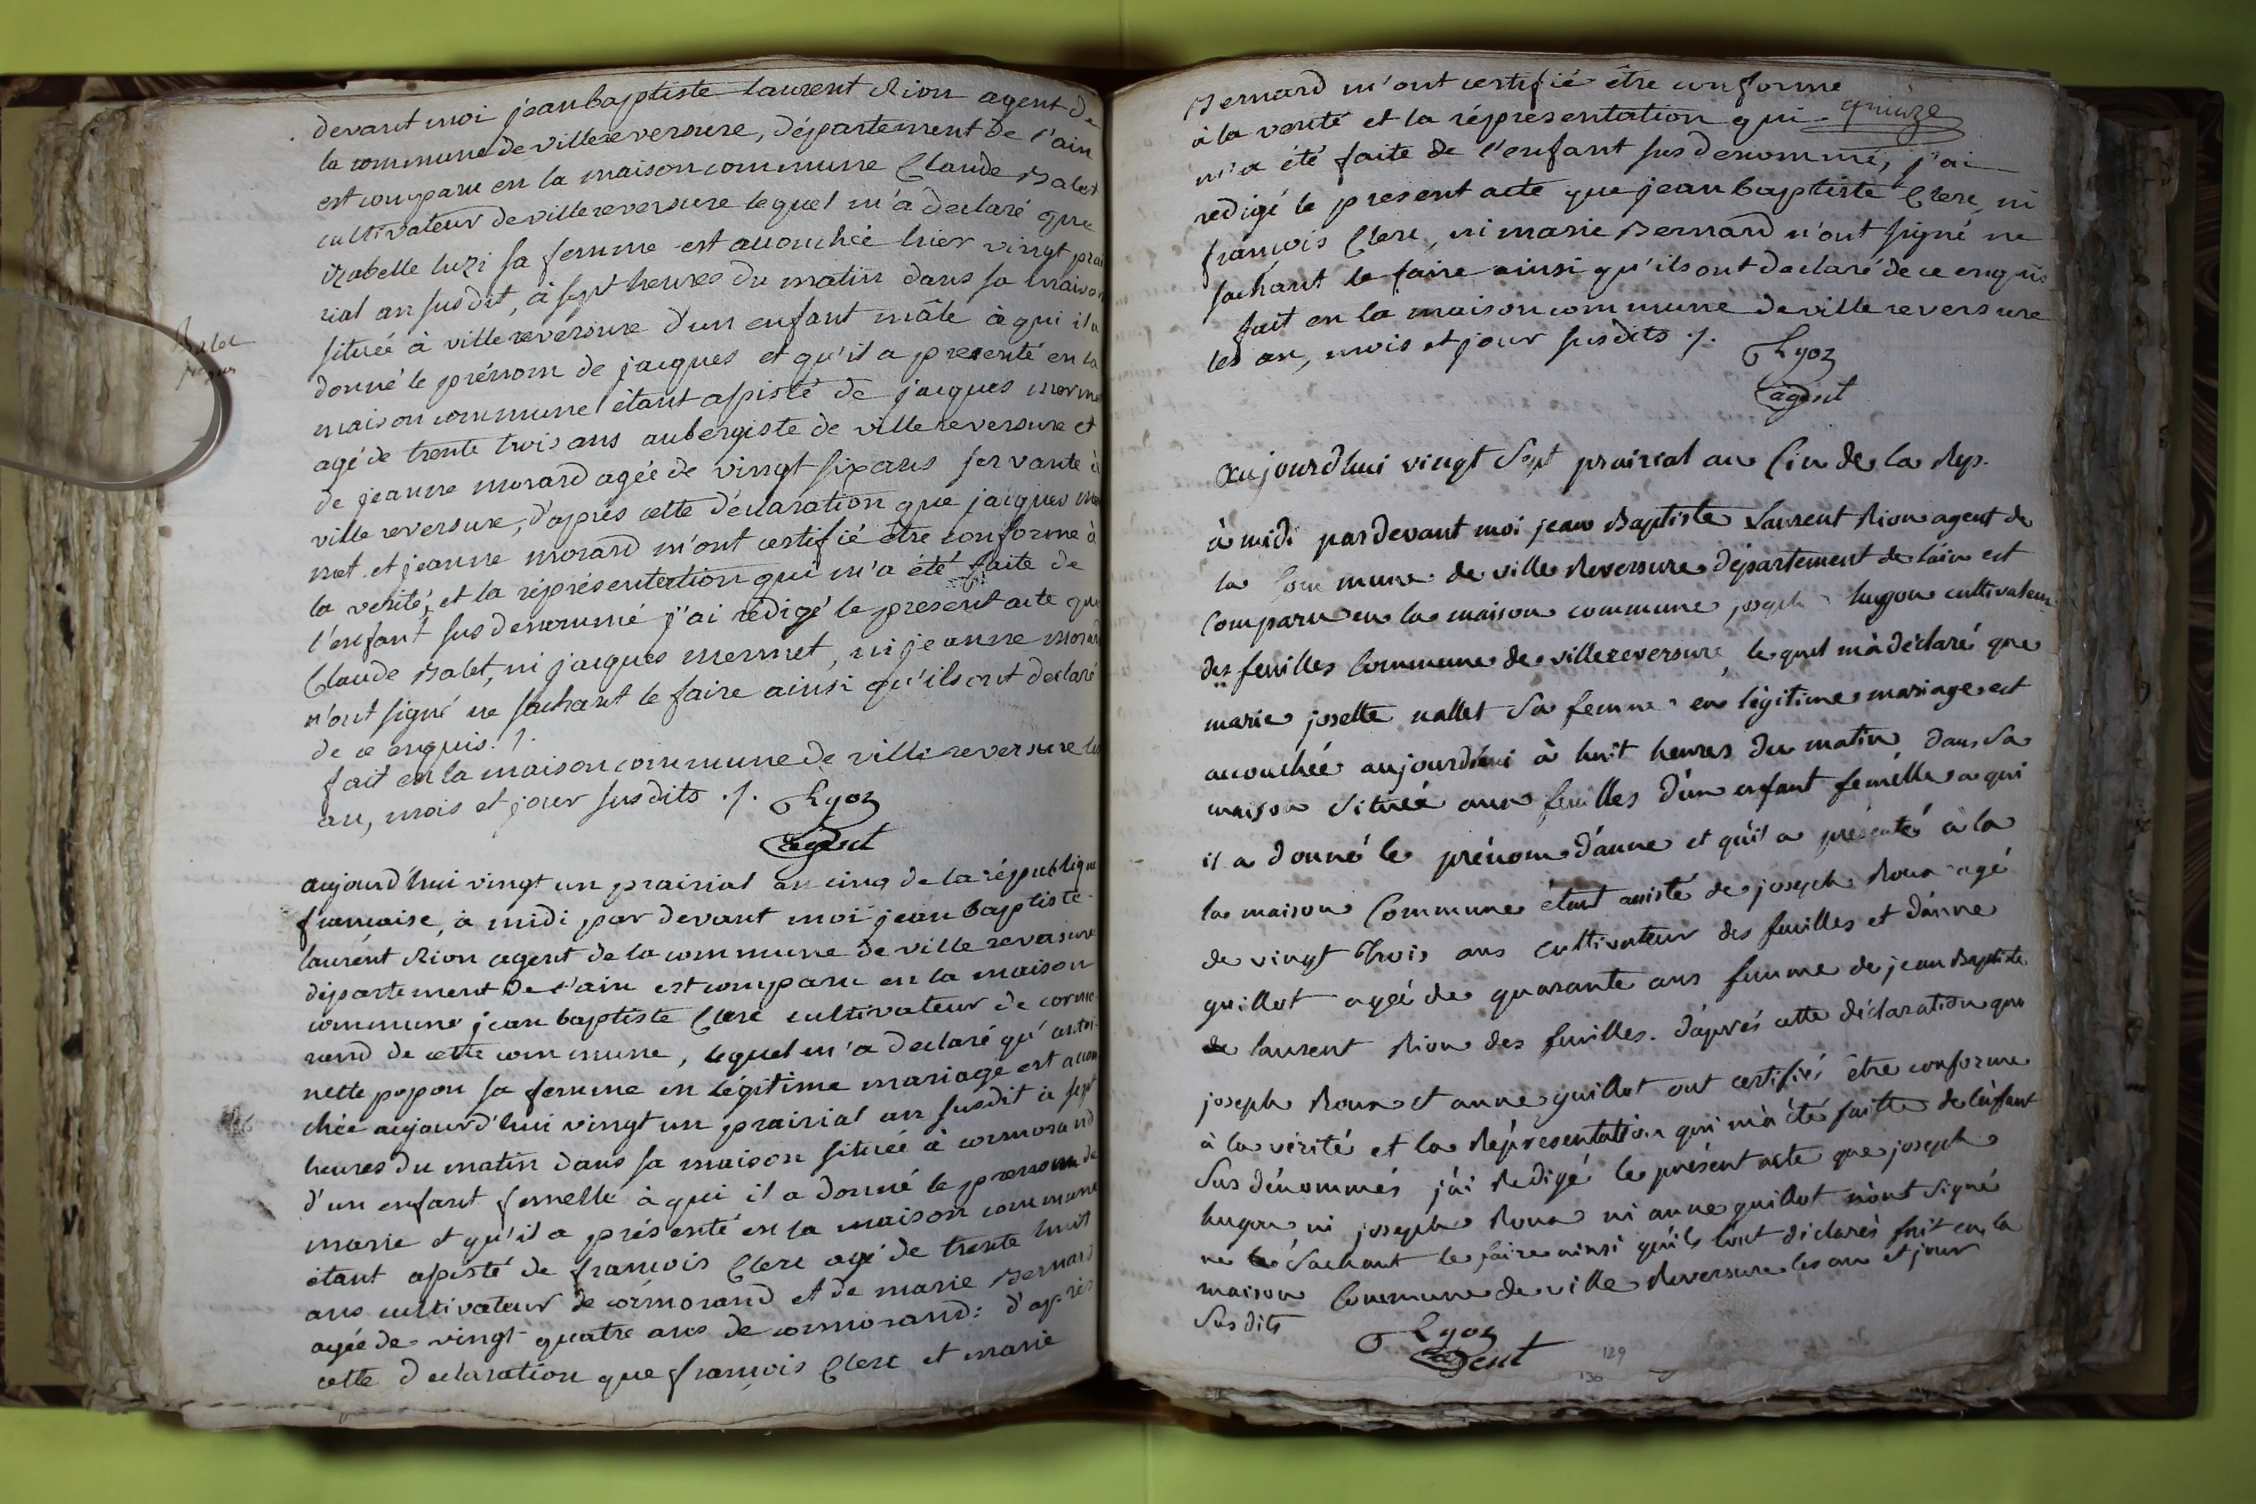 devant moi jean baptiste laurent Rion agent de
la commune de villereversure, département de l'ain
est comparu en la maison commune Claude Balet
cultivateur de villereversure lequel m'a declaré que
izabelle luzi sa femme est accouchée hier vingt prai
rial an susdit, à sept heures du matin dans sa maison
située à villereversure d'un enfant mâle à qui il a
Balet
jacques
donné le prénom de jacques et qu'il a presenté en la
maison commune étant assisté de jacques merm
agé de trente trois ans aubergiste de villereversure et
de jeanne morard agée de vingt six ans servante à
ville reversure, d'après cette déclaration que jacques mer
met et jeanne morard m'ont certifié être conforme à
la verité, et la réprésentation qui m'a été faite de
l'enfant sus denommé j'ai rédigé le present acte que
Claude Balet, ni jacques mermet, ni jeanne morard
n'ont signé ne sachant le faire ainsi qu'ils ont declaré
de ce enquis. /.
fait en la maison commune de ville reversure les
an, mois et jour susdits ./. Ryon
agent
aujourd'hui vingt un prairial an cinq de la république
francaise, à midi par devant moi jean baptiste
laurent Rion agent de la commune de ville reversure
département de l'ain est comparu en la maison
commune jean baptiste Clerc cultivateur de cormo
rand de cette commune, lequel m'a declaré qu'antoi
nette popon sa femme en légitime mariage est accou
chée aujourd'hui vingt un prairial an susdit à sept
heures du matin dans sa maison située à cormorand
d'un enfant femelle à qui il a donné le prenom de
marie et qu'il a présenté en la maison commune
étant assisté de françois Clerc agé de trente huit
ans cultivateur de cormorand et de marie Bernard
agée de vingt quatre ans de cormorand: d'après
cette declaration que françois Clerc et marie
Bernard m'ont certifié être conforme
à la verité et la réprésentation qui quinze
m'a été faite de l'enfant sus denommé, j'ai
redigé le present acte que jean baptiste Clerc, ni
françois Clerc, ni marie Bernard n'ont signé ne
sachant le faire ainsi qu'ils ont declaré de ce enquis
fait en la maison commune de ville reversure
les an, mois et jour susdits ./. Ryon
agent
Aujourd'hui vingt Sept prairial an Cin de la Rep.
à midi par devant moi jean Baptiste Laurent Rion agent de
la Commune de ville Reversure département de l'ain est
Comparu en la maison commune joseph hugon cultivateur
des feuilles Commune de villereversure, le quel m'a déclaré que
marie josette nallet Sa femme en légitime mariage est
accouchée aujourdhui à huit heures du matin dans Sa
maison Située aux feuilles d'un enfant femélle a qui
il a donné le prénom d'anne et qu'il a présenté à la
la maison Commune étant assisté de joseph Roux agé
de vingt Trois ans cultivateur des feuilles et d'anne
guillot agée de quarante ans femme de jean Baptiste
de laurent Rion des feuilles. d'après cette déclaration que
joseph Roux et anne guillot ont certifiés être conforme
à la vérité et la Répresentation qui m'a été faitte de l'enfant
Sus dénommés j'ai Redigé le présent acte que joseph
hugon, ni joseph Roux ni anne guillot n'ont Signé
ne le Sachant le faire ainsi qu'ils l'ont déclarés fait en la
maison Commune de ville Reversure les an et jour
Susdits
Ryon
agent
129
130